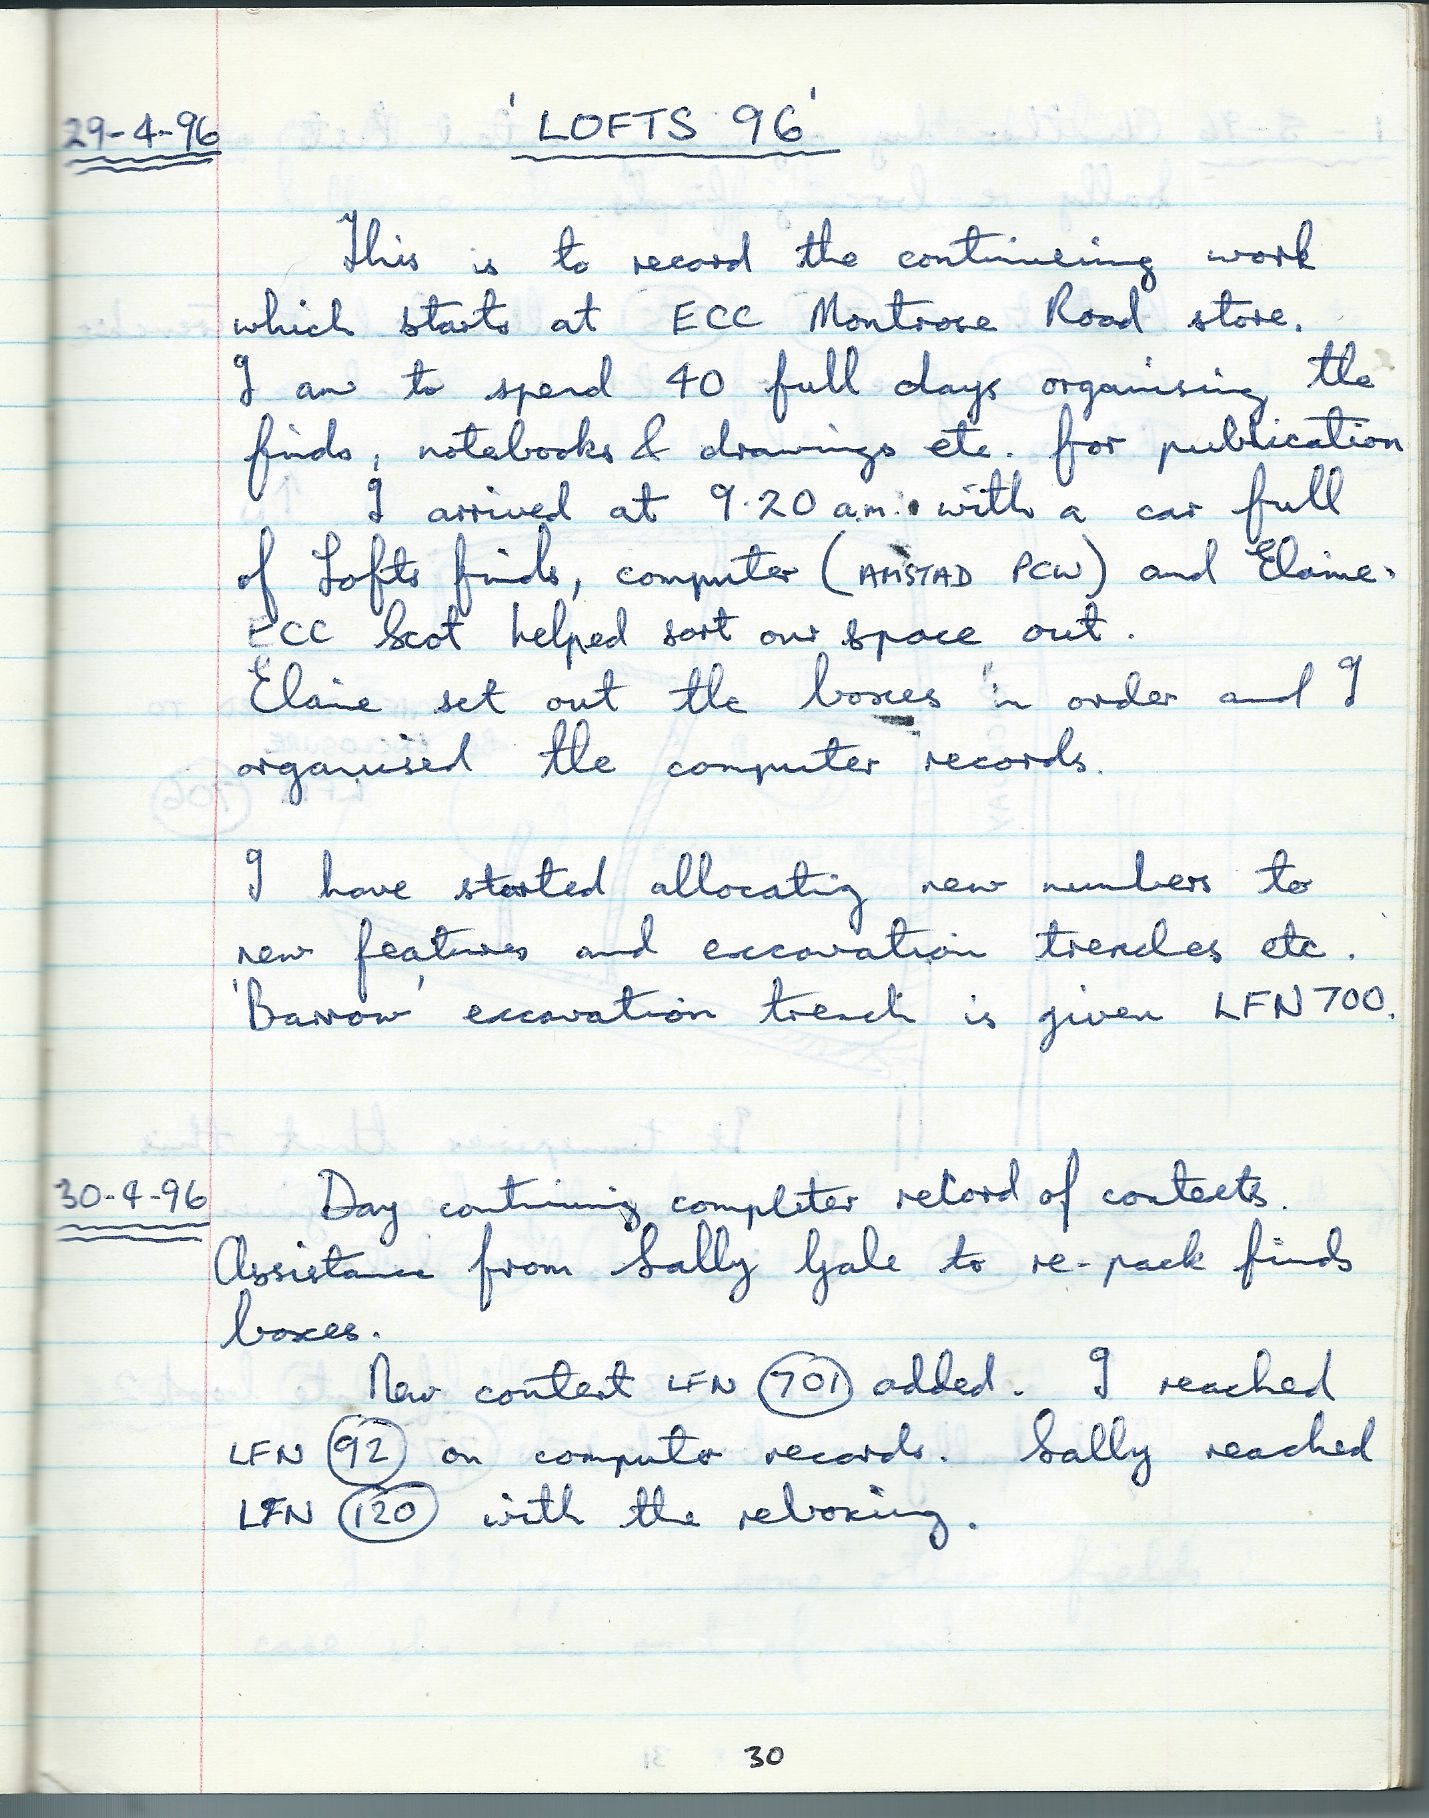 29-4-96 'LOFTS 96'
This is to record the continueing work
which starts at ECC Montrose Road store.
I am to spend 40 full days organising the
finds, notebooks & drawings etc. for publication
I arrived at 9.20 a.m. with a car full
of Lofts finds, computer (AMSTAD PCW) and Elaine.
ECC Scot helped sort our space out.
Elaine set out the boxes in order and I
organised the computer records.
I have started allocating new numbers to
new features and excavation trenches etc.
'Barrow' excavation trench is given LFN 700.
30-4-96 Day continuing completer record of contexts.
Assistance from Sally Gale to re-pack finds
boxes.
New context LFN 701 added. I reached
LFN 92 on computer records. Sally reached
LFN 120 with the reboxing.
30